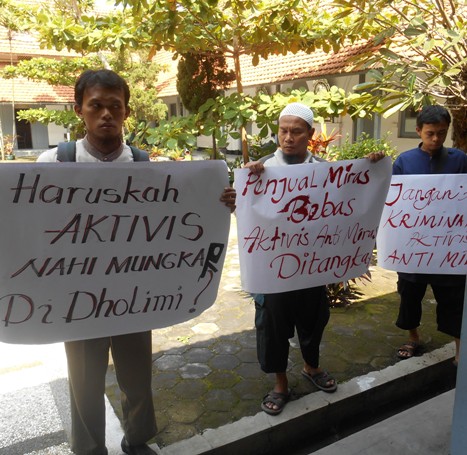 Haruskah
AKTIVIS
NAHI MUNGKAR
Di Dholimi?
Penjual Miras
Bebas
Aktivis Anti Miras
Ditangkap
Jangan
KRIMINA
AKTIVIS
ANTI MI